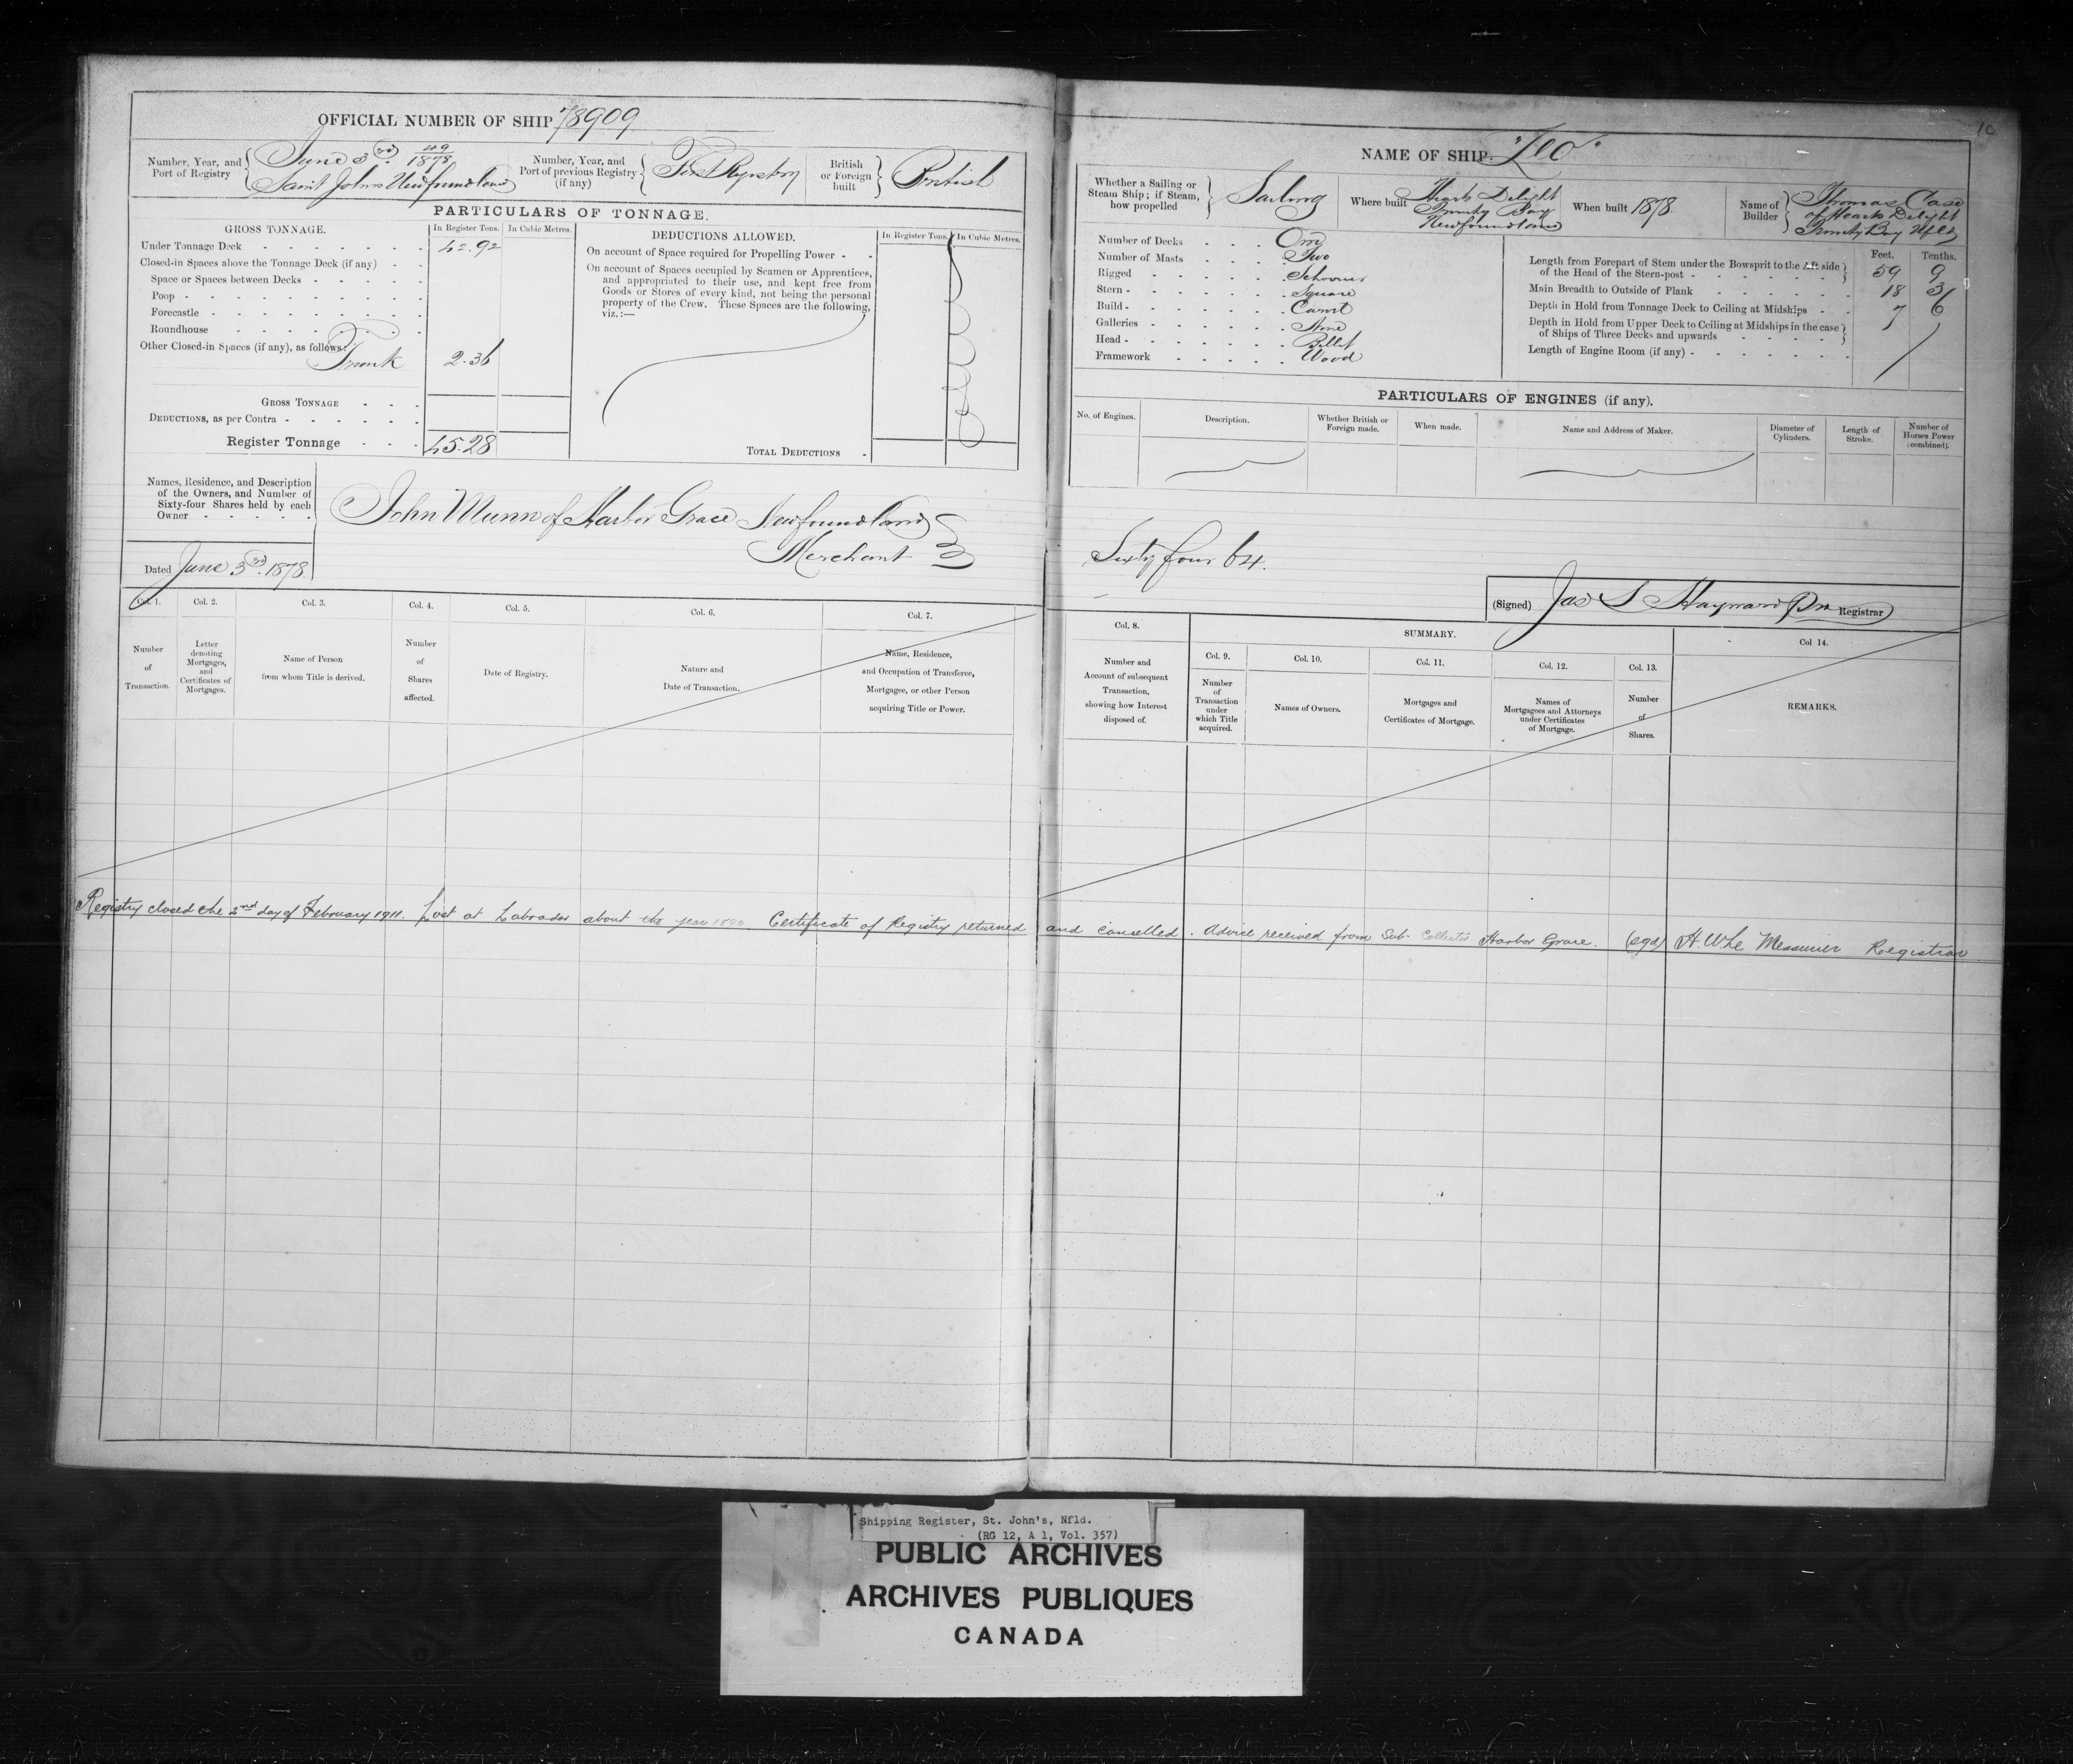 OFFICIAL NUMBER OF SHIP 78909
Number, Year, and Port of Registry
June 3rd. 49/1878
Saint Johns Newfoundland
Number, Year, and Port of previous Registry (if any)
First Registry
British or Foreign built
British
PARTICULARS OF TONNAGE.
GROSS TONNAGE.
In Register Tons.
In Cubic Metres.
DEDUCTIONS ALLOWED.
In Register Tons.
In Cubic Metres.
Under Tonnage Deck 42.92
Closed-in Spaces above the Tonnage Deck (if any)
Space or Spaces between Decks
Poop
Forecastle
Roundhouse
Other Closed-in Spaces (if any), as follows:
Trunk 2.36
GROSS TONNAGE
DEDUCTIONS, as per Contra
Register Tonnage 45.28
On account of Space required for Propelling Power
On account of Spaces occupied by Seamen or Apprentices,
and appropriated to their use, and kept free from
Goods or Stores of every kind, not being the personal
property of the Crew. These Spaces are the following,
viz.:—
TOTAL DEDUCTIONS
Names, Residence, and Description
of the Owners, and Number of
Sixty-four Shares held by each
Owner
John Munn of Harbor Grace Newfoundland
Merchant
Dated June 3rd. 1878.
Col. 1.
Col. 2.
Col. 3.
Col. 4.
Col. 5.
Col. 6.
Col. 7.
Number of Transaction.
Letter denoting Mortgages, and Certificates of Mortgages.
Name of Person from whom Title is derived.
Number of Shares affected.
Date of Registry.
Nature and Date of Transaction.
Name, Residence, and Occupation of Transferee, Mortgagee, or other Person acquiring Title or Power.
10
NAME OF SHIP. "Leo"
Whether a Sailing or Steam Ship; if Steam, how propelled
Sailing
Where built
Hearts Delight
Trinity Bay
Newfoundland
When built 1878.
Name of Builder
Thomas Case
of Hearts Delight
Trinity Bay Nfld
Number of Decks One
Number of Masts Two
Rigged Schooner
Stern Square
Build Carvel
Galleries None
Head Billet
Framework Wood
Feet. Tenths.
Length from Forepart of Stem under the Bowsprit to the Aft side
of the Head of the Stern-post 59 9
Main Breadth to Outside of Plank 18 3
Depth in Hold from Tonnage Deck to Ceiling at Midships 7 6
Depth in Hold from Upper Deck to Ceiling at Midships in the case
of Ships of Three Decks and upwards
Length of Engine Room (if any)
PARTICULARS OF ENGINES (if any).
No. of Engines.
Description.
Whether British or Foreign made.
When made.
Name and Address of Maker.
Diameter of Cylinders.
Length of Stroke.
Number of Horses Power (combined).
Sixty four 64.
(Signed) Jas S Hayward Registrar
Col. 8.
SUMMARY.
Col. 9.
Col. 10.
Col. 11.
Col. 12.
Col. 13.
Col 14.
Number and Account of subsequent Transaction, showing how Interest disposed of.
Number of Transaction under which Title acquired.
Names of Owners.
Mortgages and Certificates of Mortgage.
Names of Mortgagees and Attorneys under Certificates of Mortgage.
Number of Shares.
REMARKS.
Registry closed the 2nd day of February 1911. Lost at Labrador about the year 1890 Certificate of Registry returned and cancelled. Advice received from Sub-Collector Harbor Grace. (sgd) H. W. Le Messurier Registrar
Shipping Register, St. John's, Nfld.
(RG 12, A 1, Vol. 357)
PUBLIC ARCHIVES
ARCHIVES PUBLIQUES
CANADA